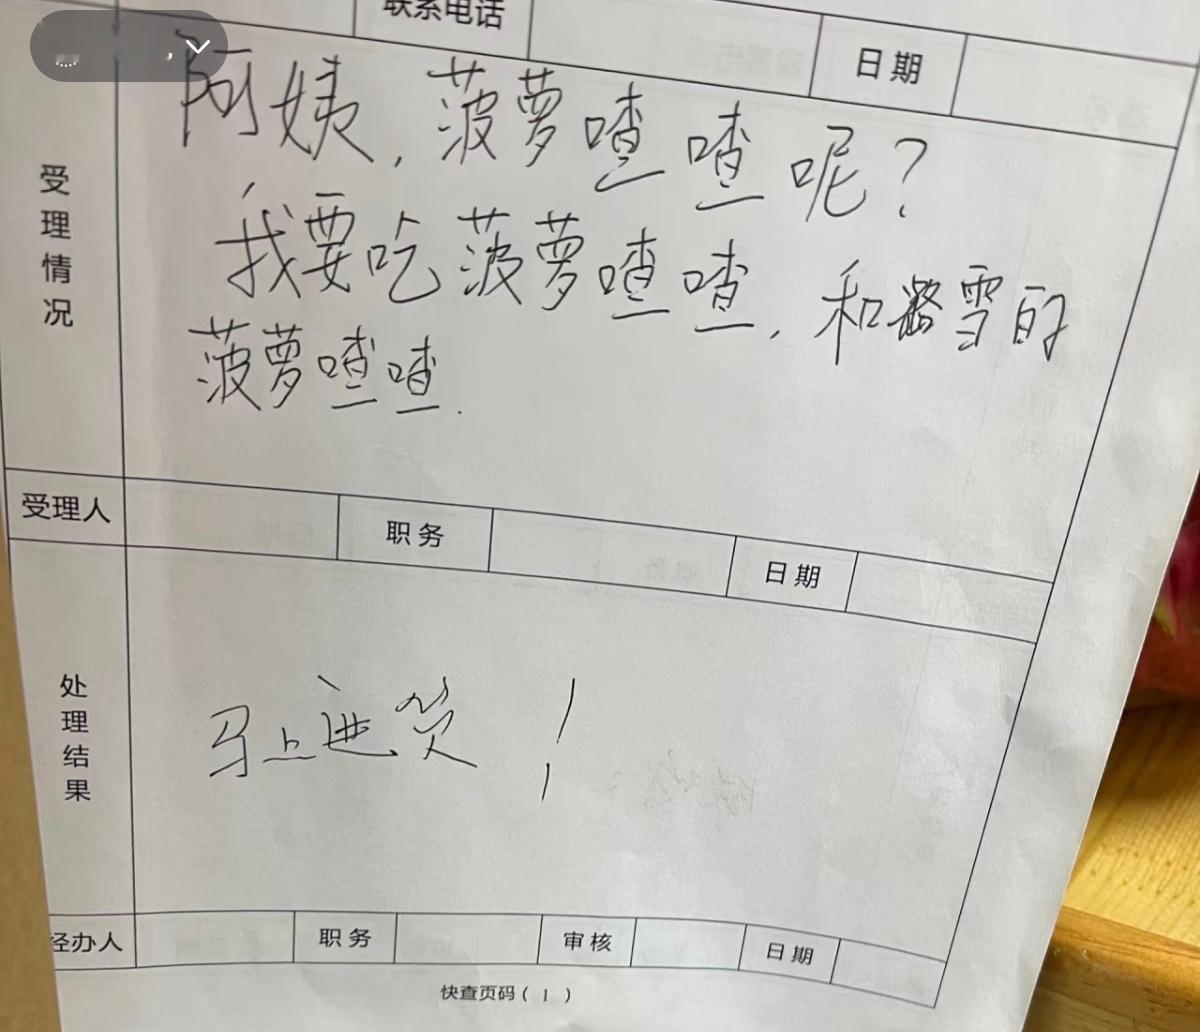 联系电话 日期
受理情况
阿姨,菠萝喳喳呢?
我要吃菠萝喳喳,和露雪的
菠萝喳喳.
受理人 职务 日期
处理结果
马上进货!
经办人 职务 审核 日期
快查页码( 1 )